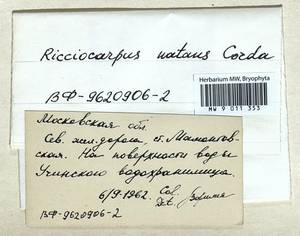 Ricciocarpus natans Corda
ВФ-9620906-2
Herbarium MW, Bryophyta
MW 9 011 353
Московская обл.
Сев. жел. дорога, ст. Мамонтов-
ская. На поверхности воды
Учинского водохранилища.
6/9-1962. Col.
Det.
ВФ-9620906-2